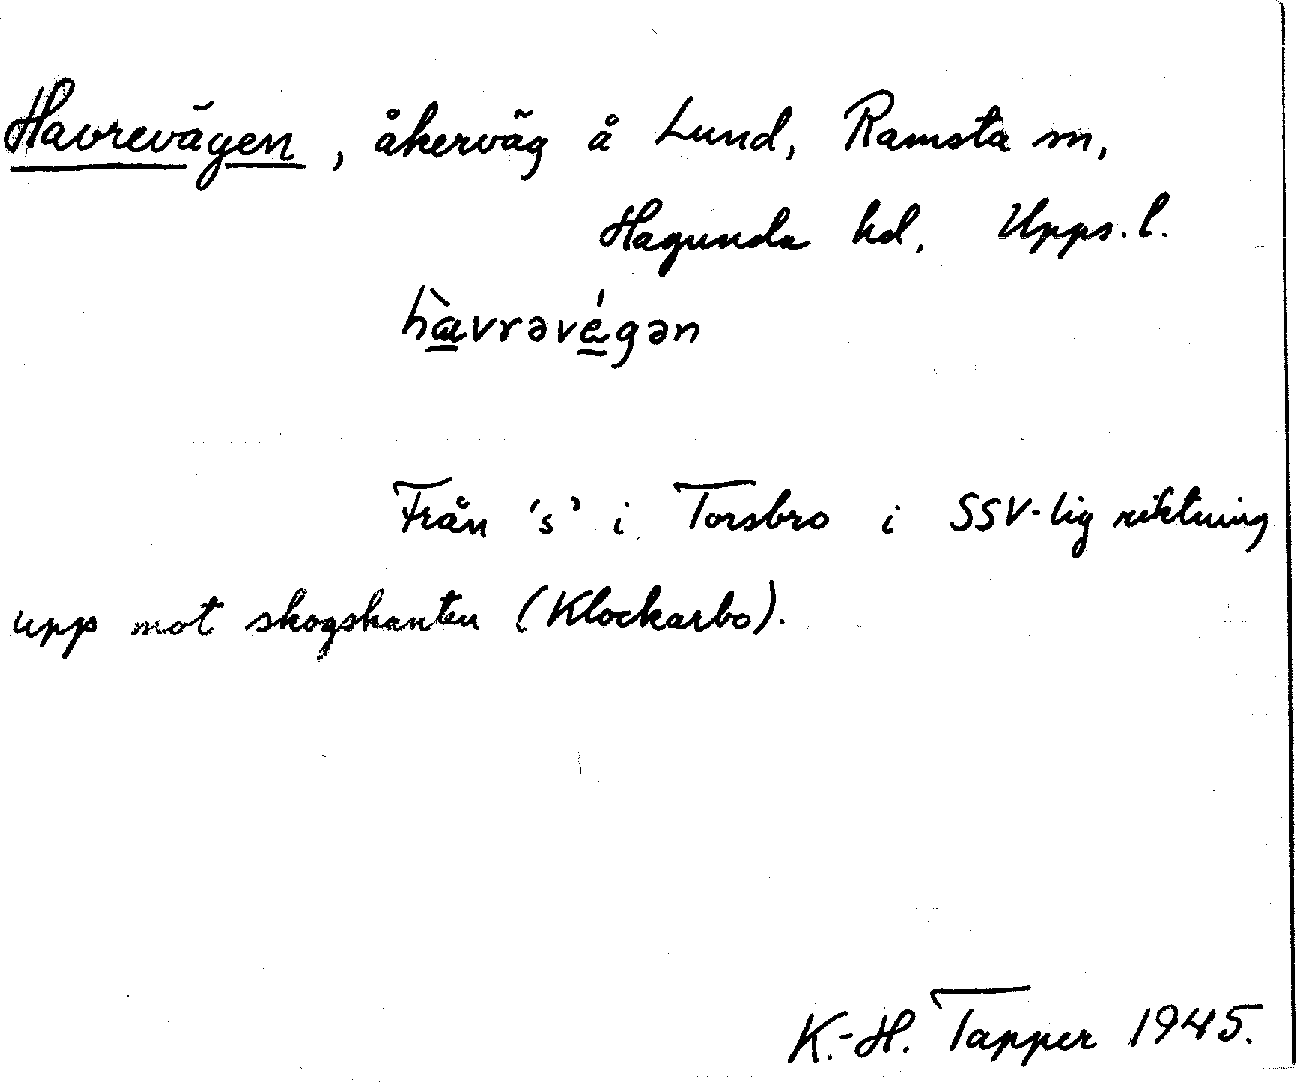 Havrevägen, åkerväg å Lund, Ramsta sn,
Hagunda hd, Upps. l.
hàvrəvégən
Från 's' i Torsbro i SSV-lig riktning
upp mot skogskanten (Klockarbo).
K.-H. Tapper 1945.